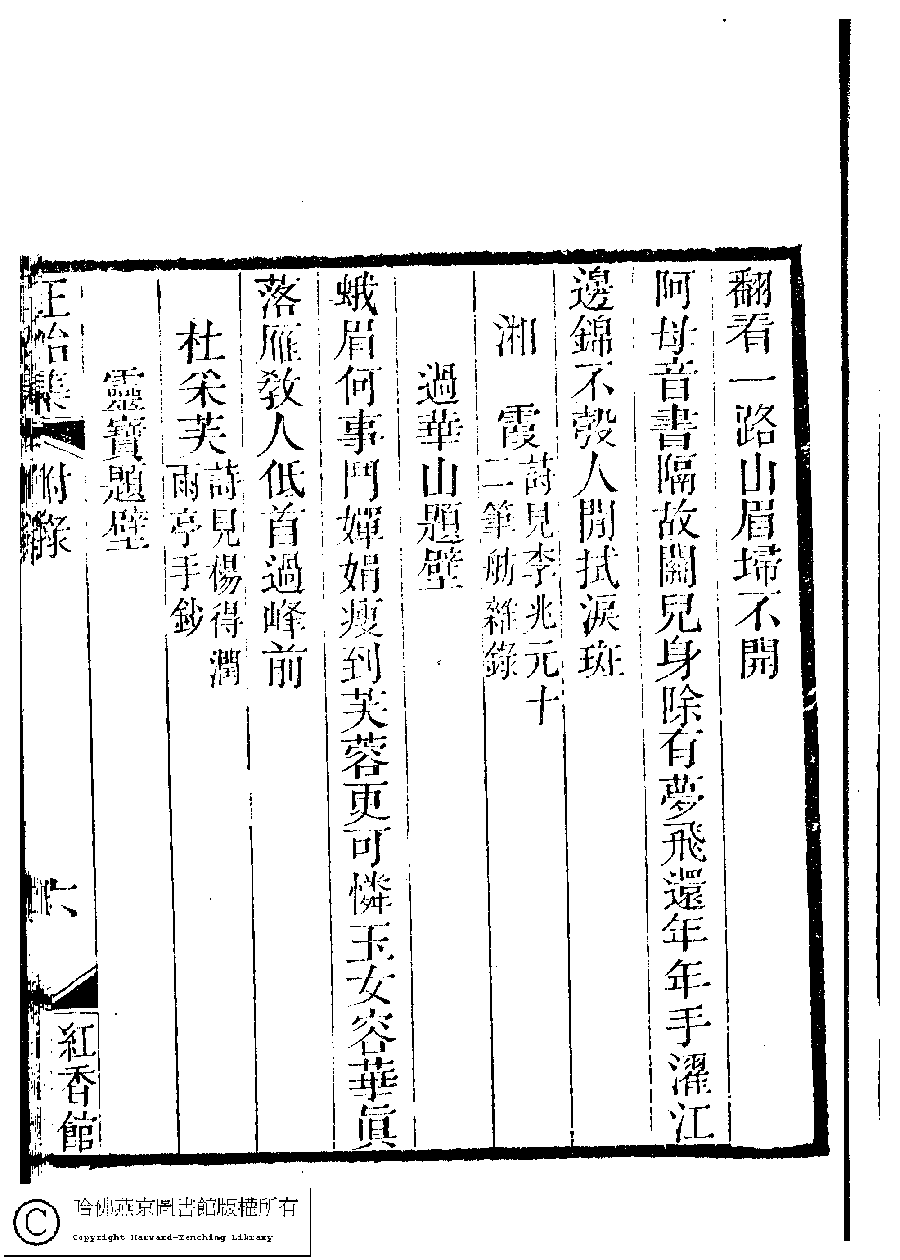 翻看一路山眉埽不開
阿母音書隔故關兒身除有夢飛還年年手濯江
邊錦不彀人間拭淚斑
湘霞
詩見李兆元十
二筆舫雜錄
過華山題壁
蛾眉何事鬥嬋娟瘦到芙蓉更可憐玉女容華眞
落雁敎人低首過峰前
杜采芙
詩見楊得潤
雨亭手鈔
靈寶題壁
正始集
附錄
六
紅香館
哈佛燕京圖書館版權所有
Copyright Harvard-Yenching Library